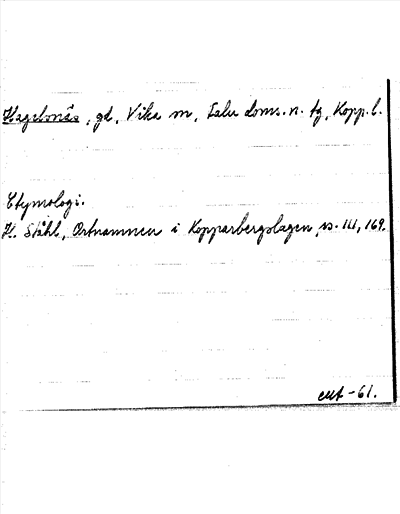 Hagelsnäs, gd, Vika sn, Falu doms. n. tg, Kopp. l.
Etymologi.
H. Ståhl, Ortnamnen i Kopparbergslagen, s. 111, 169.
-61.